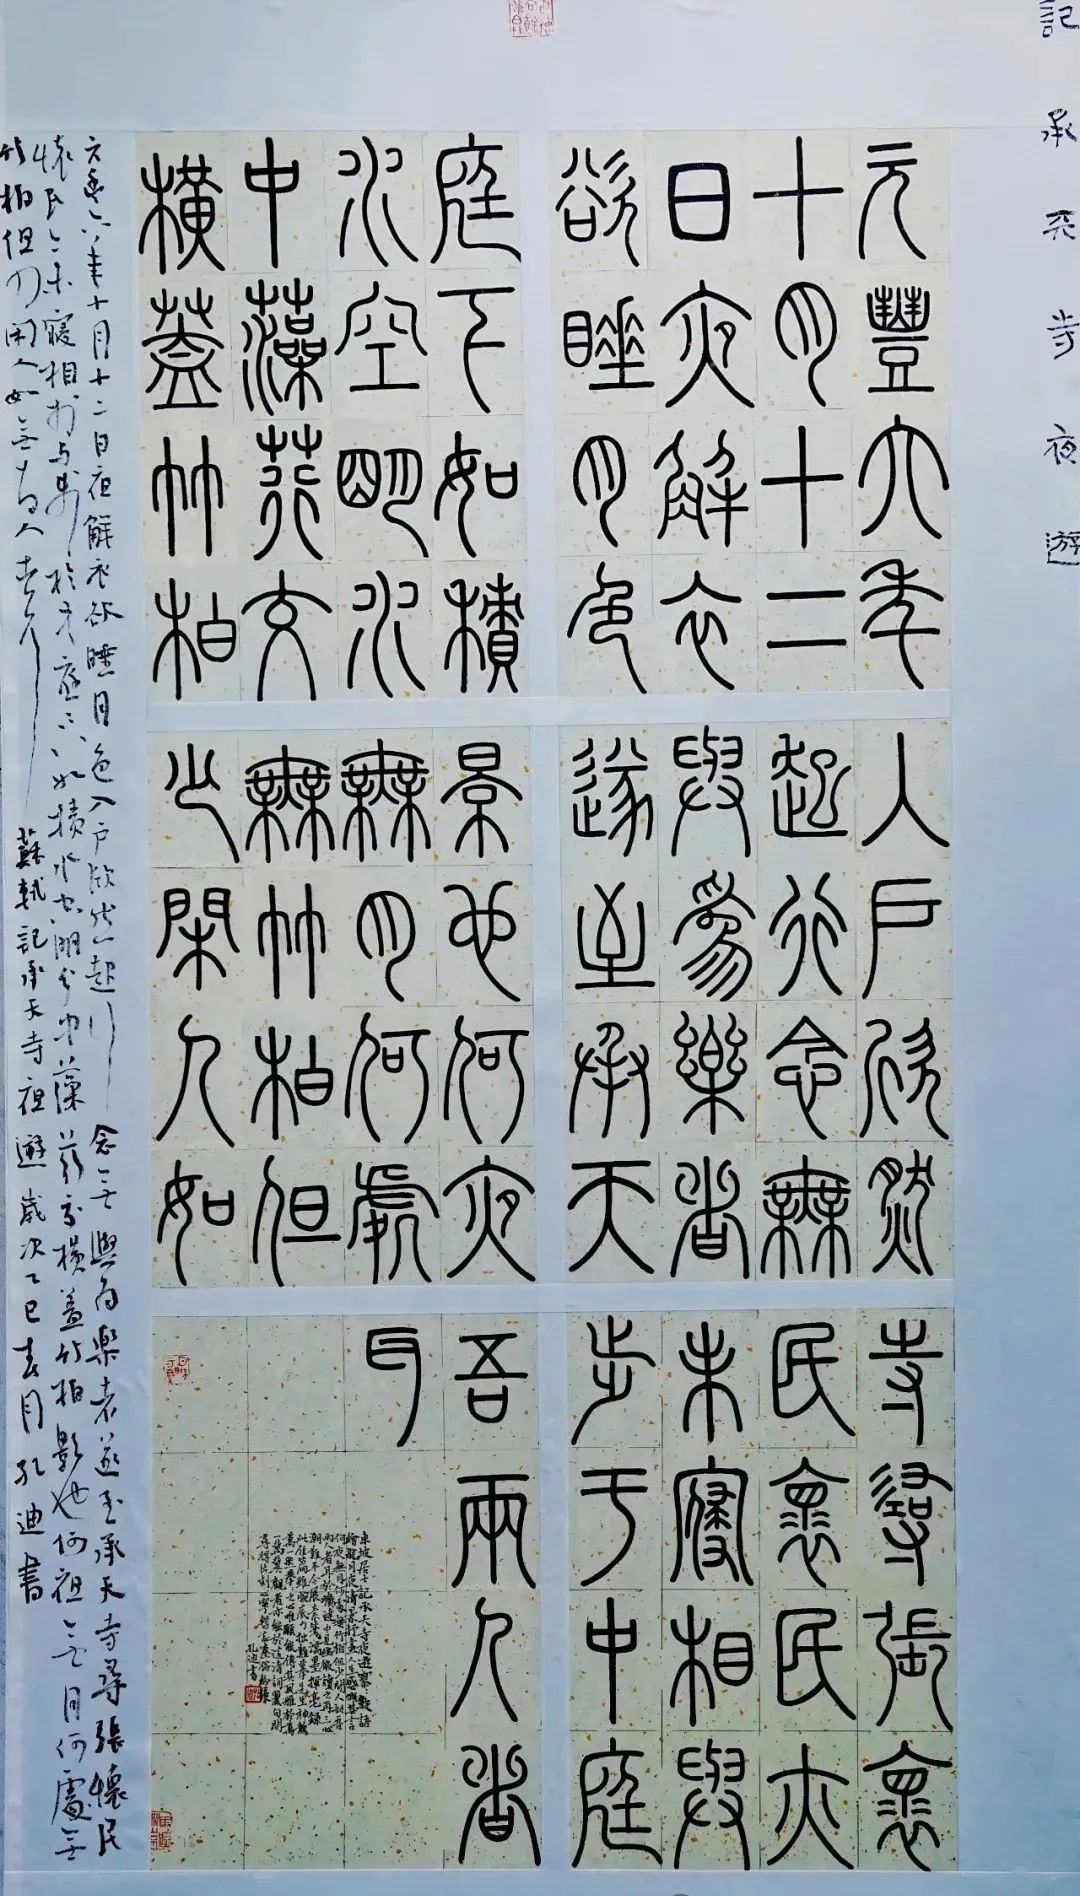 記承天寺夜遊
元豐六年
十月十二
日夜解衣
欲睡月色
入戶欣然
起行念無
與爲樂者
遂至承天
寺尋張懷
民懷民亦
未寢相與
步于中庭
庭下如積
水空明水
中藻荇交
橫蓋竹柏
景也何夜
無月何處
無竹柏但
少閑人如
吾兩人者
耳
東坡居士記承天寺夜遊寥寥數語
孔迪書
元豐六年十月十二日夜解衣欲睡月色入戶欣然起行念無與為樂者遂至承天寺尋張懷民
懷民亦未寢相與步於中庭庭下如積水空明水中藻荇交橫蓋竹柏影也何夜無月何處無
竹柏但少閑人如吾兩人者耳 蘇軾記承天寺夜遊歲次乙巳月孔迪書